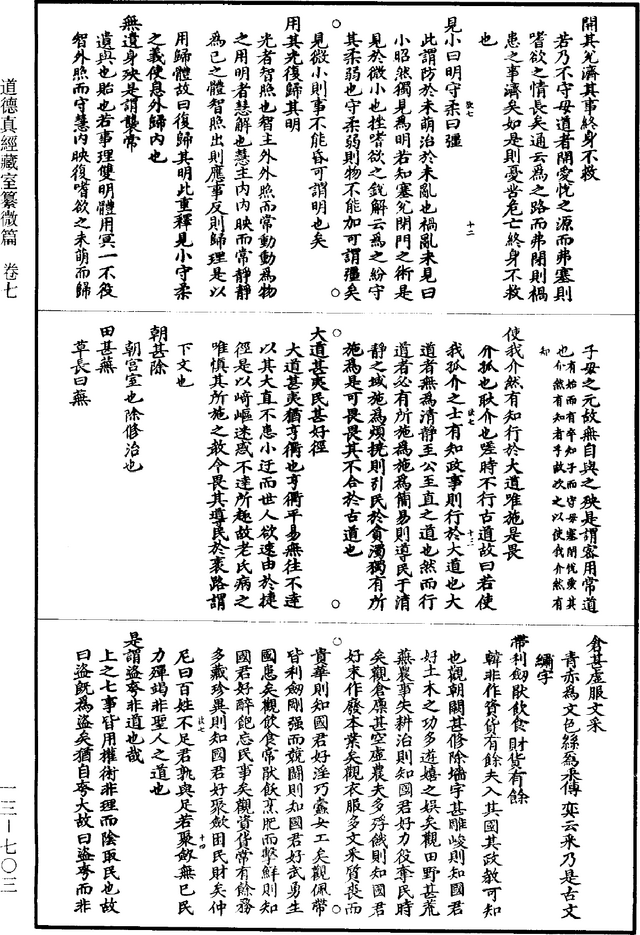 開其兌濟其事終身不救
若乃不守母道者開愛悅之源而弗塞則
嗜欲之情長矣通云為之路而弗閉則禍
患之事濟矣如是則憂苦危亡終身不救
也
見小曰明守柔曰彊
此謂防於未萌治於未亂也禍亂未見曰
小昭然獨見為明若知塞兌閉門之術是
見於微小也挫嗜欲之銳解云為之紛守
其柔弱也守柔弱則物不能加可謂彊矣
見微小則事不能昏可謂明也矣
用其光復歸其明
光者智照也智主外外照而常動動為物
之用明者慧解也慧主內內映而常靜靜
為己之體智照出則應事反則歸理是以
用歸體故曰復歸其明此重釋見小守柔
之義使息外歸內也
無遺身殃是謂襲常
遺與也貽也若事理雙明體用冥一不役
智外照而守慧內映復嗜欲之未萌而歸
子母之元故無自與之殃是謂密用常道
也有始而有卒知子而守母塞閉悅兌其
介然有知者乎故次之以使我介然有
知
使我介然有知行於大道唯施是畏
介孤也耿介也嗟時不行古道故曰若使
我孤介之士有知政事則行於大道也大
道者無為清靜至公至直之道也然而行
道者必有所施為施為簡易則導民于清
靜之域施為煩撓則引民於貪濁獨有所
施為是可畏畏其不合於古道也
大道甚夷民甚好徑
大道甚夷猶亨衢也亨衢平易無往不達
以其大直不患小迂而世人欲速由於捷
徑是以崎嶇迷惑不達所趣故老氏病之
唯慎其所施之教令畏其導民於衺路謂
下文也
朝甚除
朝宮室也除修治也
田甚蕪
草長曰蕪
倉甚虛服文采
青赤為文色絲為采傅奕云采乃是古文
繡字
帶利劍猒飲食財貨有餘
韓非作資貨有餘夫入其國其政教可知
也觀朝闕甚修除墻宇甚雕峻則知國君
好土木之功多遊嬉之娛矣觀田野甚荒
蕪農事失耕治則知國君好力役奪民時
矣觀倉廩甚空虛農夫多浮餓則知國君
好末作廢本業矣觀衣服多文采質喪而
貴華則知國君好淫巧蠹女工矣觀佩帶
皆利劍剛強而競鬪則知國君好武勇生
國患矣觀飲食常猒飫烹肥而擊鮮則知
國君好醉飽忘民事矣觀資貨常有餘務
多藏珍異則知國君好聚斂困民財矣仲
尼曰百姓不足君孰與足若聚斂無已民
力殫竭非聖人之道也
是謂盜夸非道也哉
上之七事皆用權術非理而陰取民也故
曰盜既為盜矣猶自夸大故曰盜夸而非
道德真經藏室纂微篇 卷七
一三—七〇三